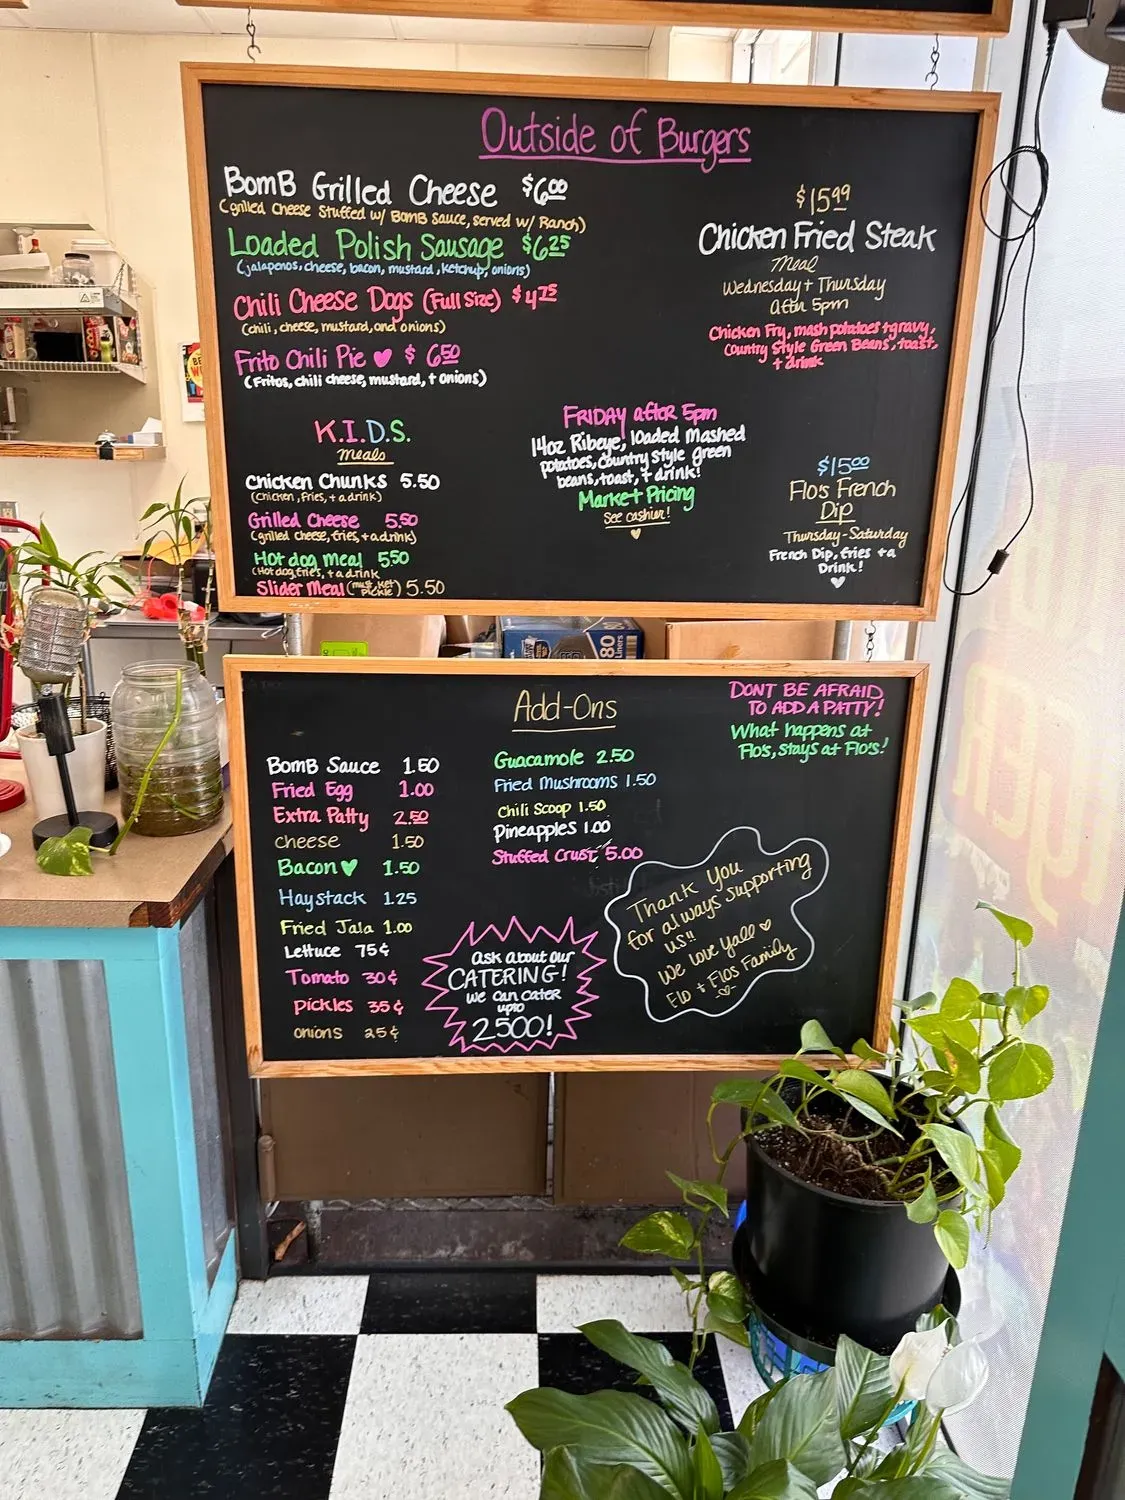 Outside of Burgers
BomB Grilled Cheese $6.00
(grilled cheese stuffed w/ BomB Sauce, served w/ Ranch)
Loaded Polish Sausage $6.25
(jalapenos, cheese, bacon, mustard, ketchup, onions)
Chili Cheese Dogs (Full Size) $4.75
(chili, cheese, mustard, and onions)
Frito Chili Pie ♥ $6.50
(Fritos, chili cheese, mustard, + onions)
$15.99
Chicken Fried Steak
Meal
Wednesday + Thursday
after 5pm
Chicken Fry, mash potatoes + gravy,
Country Style Green Beans, toast,
+ drink
K.I.D.S.
meals
Chicken Chunks 5.50
(Chicken, fries, + a drink)
Grilled Cheese 5.50
(grilled Cheese, fries, + a drink)
Hot dog meal 5.50
(Hot dog, fries, + a drink
Slider Meal (must, ket pickle) 5.50
FRIDAY after 5pm
14oz Ribeye, loaded Mashed
potatoes, country style green
beans, toast, + drink!
Market Pricing
See cashier!
$15.00
Flo's French
Dip
Thursday-Saturday
French Dip, fries + a
Drink!
80
Add-Ons
BomB Sauce 1.50
Fried Egg 1.00
Extra Patty 2.50
cheese 1.50
Bacon ♥ 1.50
Haystack 1.25
Fried Jala 1.00
Lettuce 75¢
Tomato 30¢
pickles 35¢
onions 25¢
Guacamole 2.50
Fried Mushrooms 1.50
Chili Scoop 1.50
Pineapples 1.00
Stuffed Crust 5.00
DONT BE AFRAID
TO ADD A PATTY!
What happens at
Flo's, stays at Flo's!
ask about our
CATERING!
we can cater
upto
2500!
Thank You
for always supporting
us!!
We love yall ♥
Flo + Flos Family